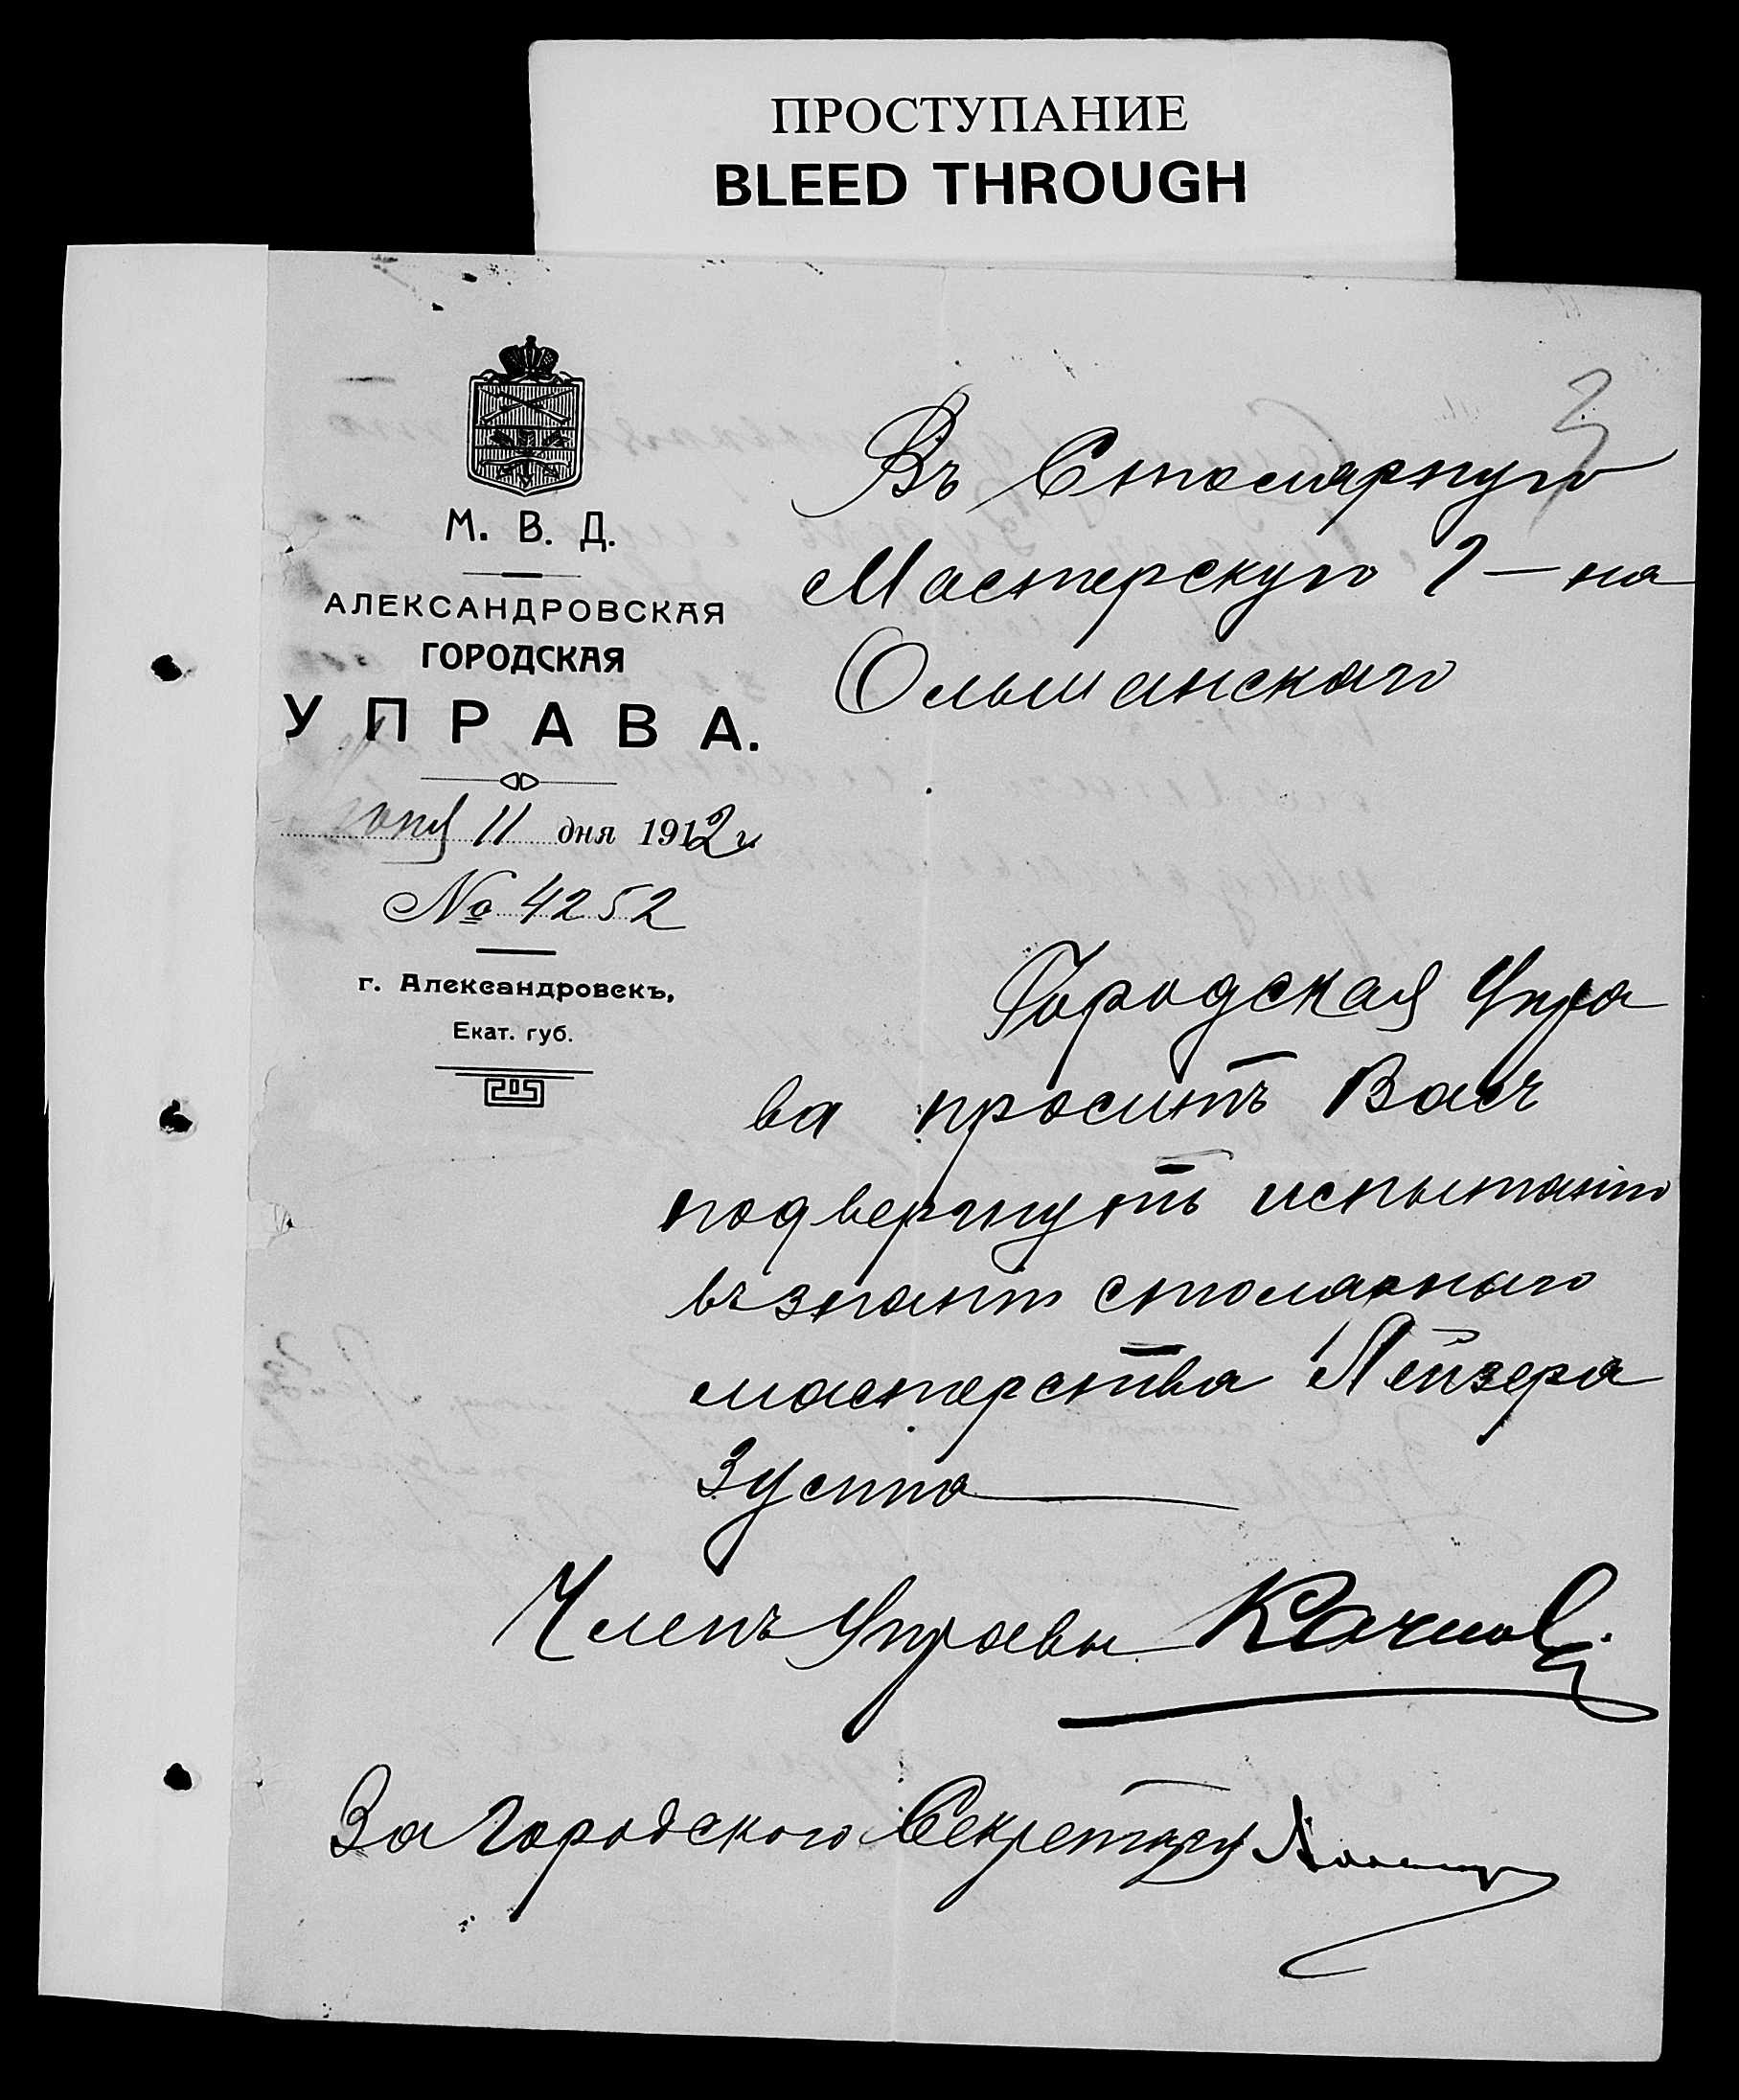 ПРОСТУПАНИЕ
BLEED THROUGH
3
М. В. Д.
АЛЕКСАНДРОВСКАЯ
ГОРОДСКАЯ
УПРАВА.
11 дня 1912 г.
№ 4252
г. Александровскъ,
Екат. губ.
Въ Столярную
Мастерскую Г–на
Ольшанскаго
Городская Упра
ва проситъ Васъ
подвергнуть испытанію
въ знаніи столярнаго
мастерства Лейзера
Члена Управы
За Городского Секретаря